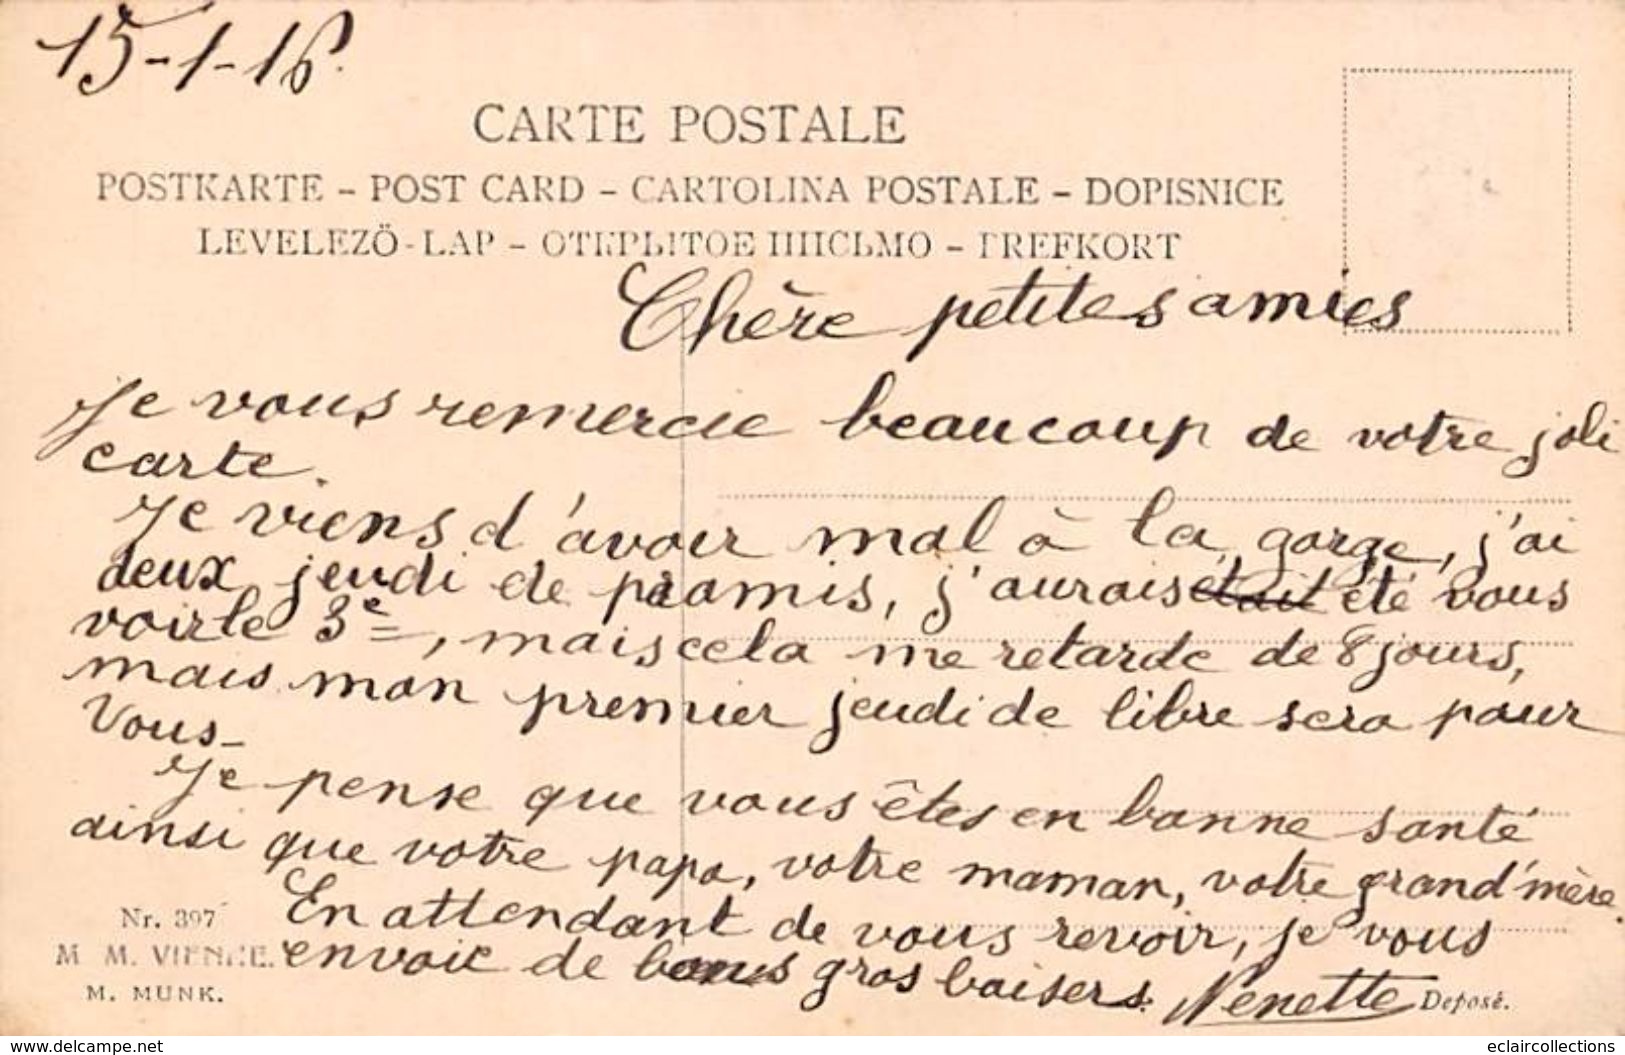 15-1-16.
CARTE POSTALE
POSTKARTE – POST CARD – CARTOLINA POSTALE – DOPISNICE
LEVELEZÖ-LAP – ОТКРЫТОЕ ПИСЬМО – BREFKORT
Chère petites amies
Je vous remercie beaucoup de votre joli
carte.
Je viens d'avoir mal à la gorge, j'ai
deux jeudi de promis, j'aurais était été vous
voir le 3e, mais cela me retarde de 8 jours,
mais mon premier jeudi de libre sera pour
Vous-
Je pense que vous êtes en bonne santé
ainsi que votre papa, votre maman, votre grand'mère.
En attendant de vous revoir, je vous
envoie de bons gros baisers. Nenette
Nr. 397
M. M. VIENNE.
M. MUNK.
Deposé.
www.delcampe.net
eclaircollections